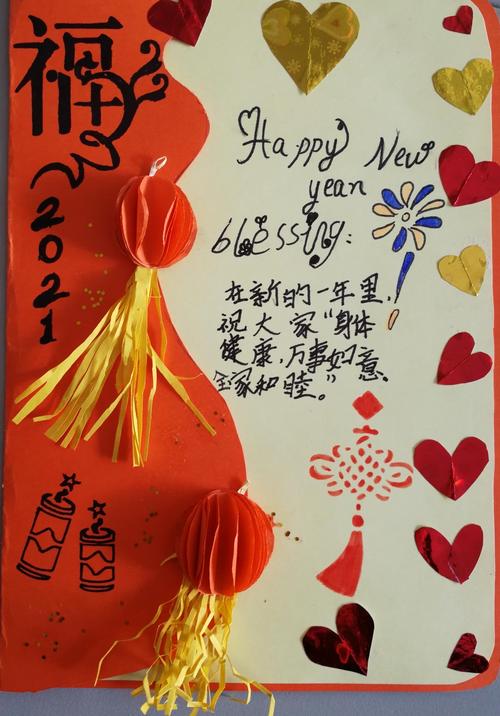 福
2021
Happy New
yean
blessing:
在新的一年里,
祝大家“身体
健康,万事如意,
全家和睦。”